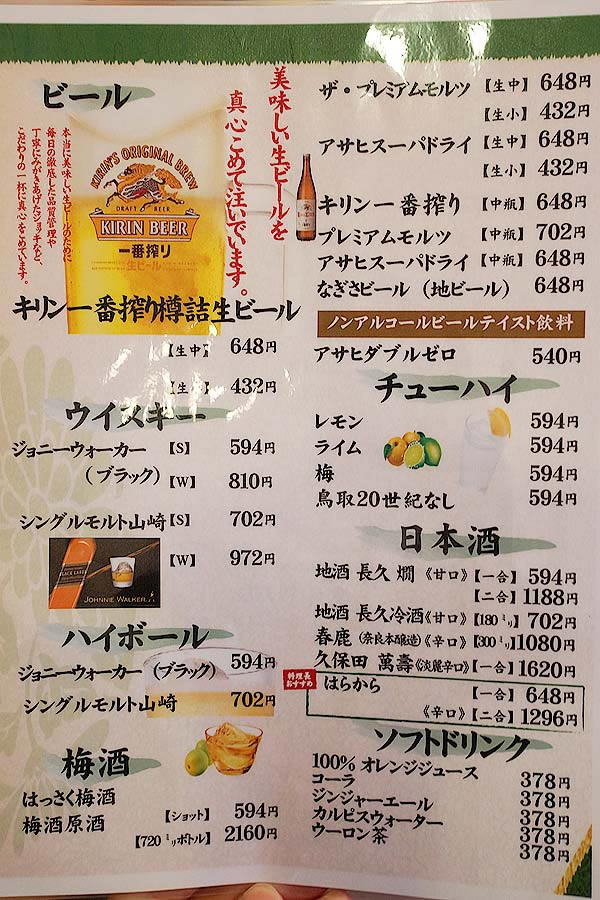 ビール
美味しい生ビールを
真心こめて注いでいます。
本当に美味しい生ビールのために
毎日の徹底した品質管理や
丁寧にみがきあげたジョッキなど、
こだわりの一杯に真心をこめています。
KIRIN'S ORIGINAL BREW
DRAFT BEER
KIRIN BEER
一番搾り
生ビール
キリン一番搾り樽詰生ビール
【生中】 648円
【生小】 432円
ウイスキー
ジョニーウォーカー 【S】 594円
(ブラック) 【W】 810円
シングルモルト山崎 【S】 702円
【W】 972円
BLACK LABEL
JOHNNIE WALKER
ハイボール
ジョニーウォーカー (ブラック) 594円
シングルモルト山崎 702円
梅酒
はっさく梅酒
梅酒原酒 【ショット】 594円
【720㍉㍑ボトル】 2160円
ザ・プレミアムモルツ 【生中】 648円
【生小】 432円
アサヒスーパドライ 【生中】 648円
【生小】 432円
キリン一番搾り 【中瓶】 648円
プレミアムモルツ 【中瓶】 702円
アサヒスーパドライ 【中瓶】 648円
なぎさビール (地ビール) 648円
ノンアルコールビールテイスト飲料
アサヒダブルゼロ 540円
チューハイ
レモン 594円
ライム 594円
梅 594円
鳥取20世紀なし 594円
日本酒
地酒 長久 燗 《甘口》 【一合】 594円
【二合】 1188円
地酒 長久冷酒 《甘口》 【180㍉㍑】 702円
春鹿 (奈良本醸造) 《辛口》 【300㍉㍑】 1080円
久保田 萬壽 《淡麗辛口》 【一合】 1620円
料理長おすすめ
はらから 【一合】 648円
《辛口》 【二合】 1296円
ソフトドリンク
100% オレンジジュース 378円
コーラ 378円
ジンジャーエール 378円
カルピスウォーター 378円
ウーロン茶 378円